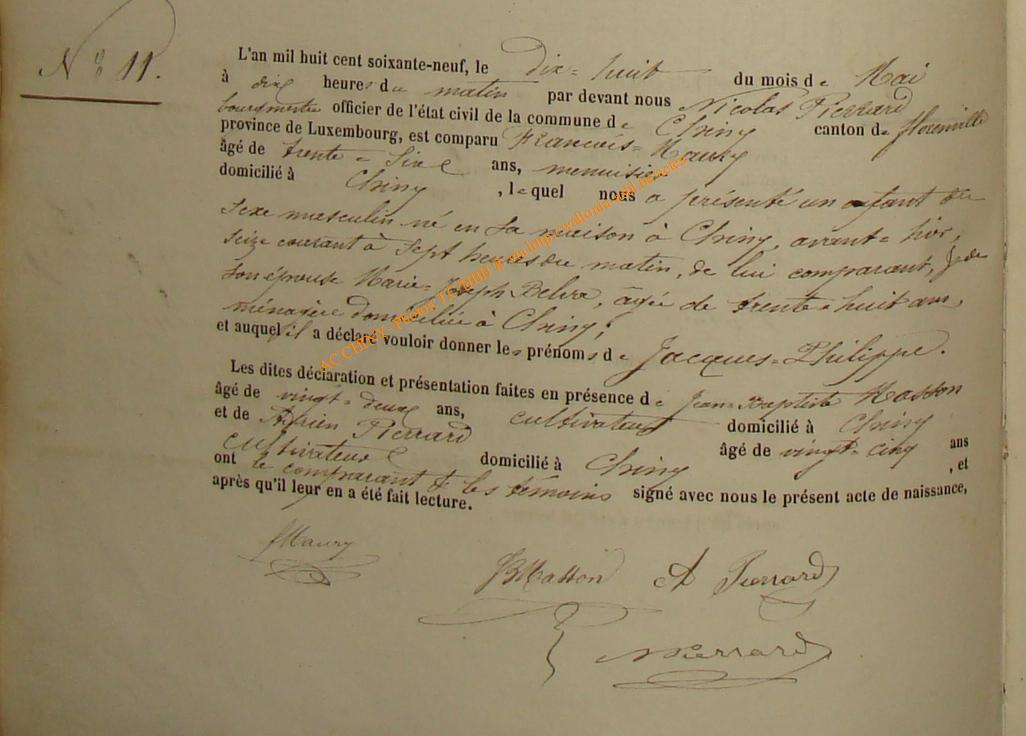 N° 11.
L'an mil huit cent soixante-neuf, le dix-huit du mois de Mai
à dix heures du matin par devant nous Nicolas Pierrard
bourgmestre officier de l'état civil de la commune de Chiny canton de Florenville
province de Luxembourg, est comparu François Maury
âgé de trente-six ans, menuisier
domicilié à Chiny, lequel nous a présenté un enfant du
sexe masculin né en sa maison à Chiny, avant-hier,
seize courant à sept heures du matin, de lui comparant, & de
son épouse Marie-Joseph, âgée de trente-huit ans,
ménagère domiciliée à Chiny;
et auquel il a déclaré vouloir donner les prénoms de Jacques-Philippe.
Les dites déclaration et présentation faites en présence de Jean-Baptiste Masson
âgé de vingt-deux ans, cultivateur domicilié à Chiny
et de Adrien Pierrard âgé de vingt-cinq ans
cultivateur domicilié à Chiny, et
ont le comparant & les témoins signé avec nous le présent acte de naissance,
après qu'il leur en a été fait lecture.
Maury
JB Masson A Pierrard
N Pierrard
AC CHINY - Photos